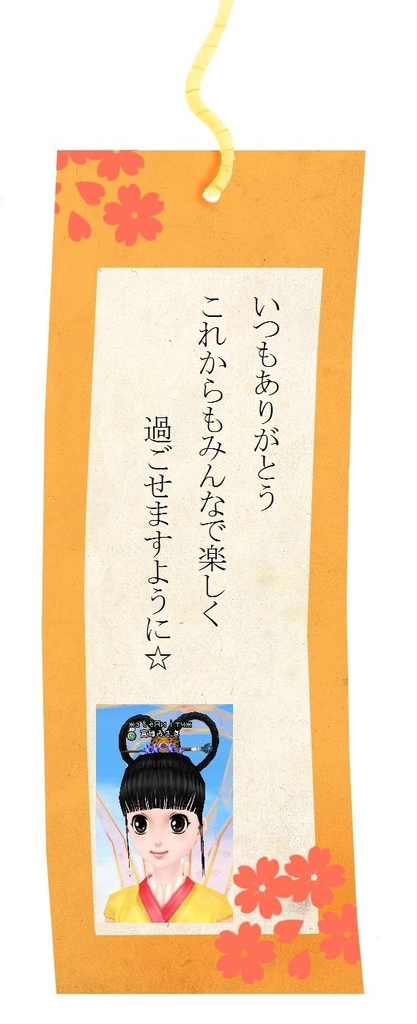 いつもありがとう
これからもみんなで楽しく
過ごせますように☆